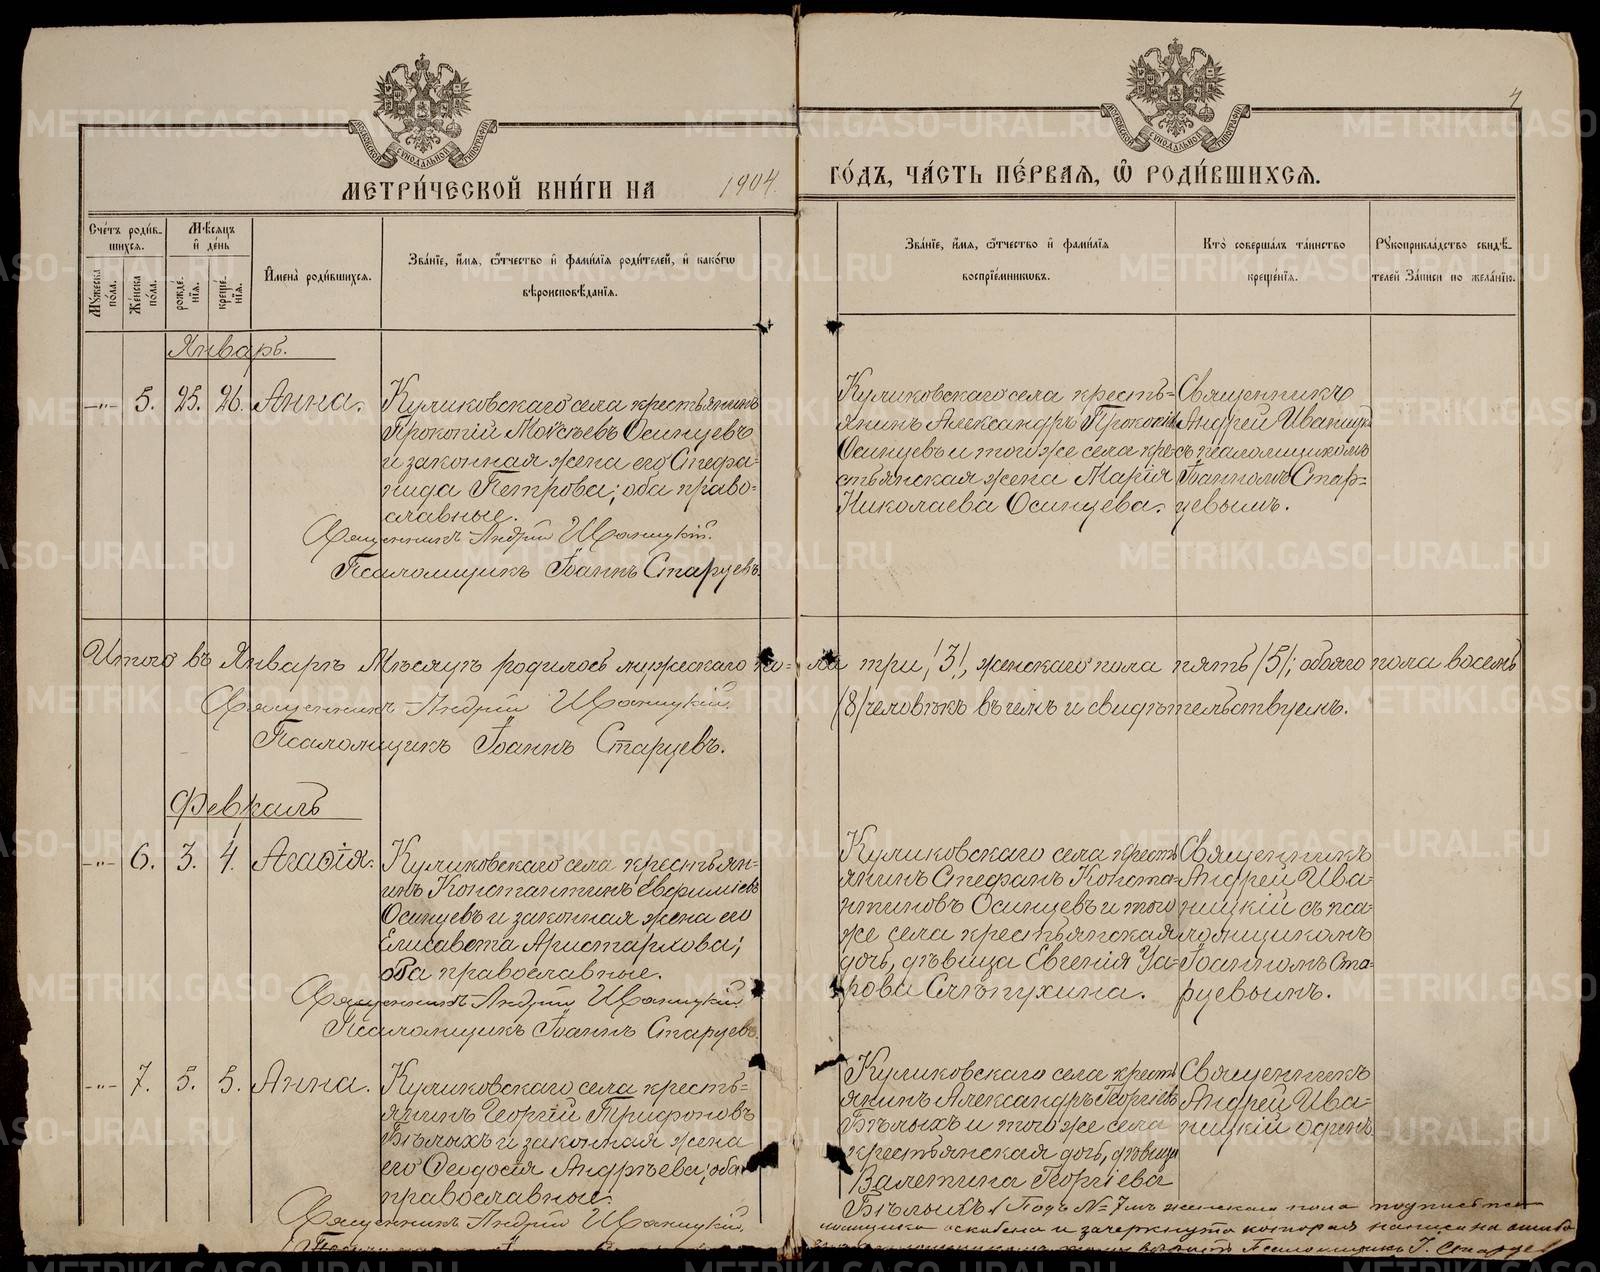 4
МОСКОВСКОЙ СѴНОДАЛЬНОЙ ТИПОГРАФІИ
МОСКОВСКОЙ СѴНОДАЛЬНОЙ ТИПОГРАФІИ
МЕТРИ́ЧЕСКОЙ КНИ́ГИ НА 1904. ГО́ДЪ, ЧА́СТЬ ПЕ́РВАѦ, Ѽ РОДИ́ВШИХСѦ.
Сче́тъ роди́в-
шихсѧ.
Мꙋ́жеска по́ла.
Же́нска по́ла.
Мѣ́сѧцъ
и҆ де́нь
рожде́-
нїѧ.
креще́-
нїѧ.
И҆мена̀ роди́вшихсѧ.
Зва́нїе, и҆́мѧ, ѻ҆́тчество и҆ фами́лїѧ роди́телей, и҆ како́гѡ
вѣроисповѣ́данїѧ.
Зва́нїе, и҆́мѧ, ѻ҆́тчество и҆ фами́лїѧ
воспрїе́мниковъ.
Кто̀ соверша́лъ та́инство
креще́нїѧ.
Рꙋкоприкла́дство свидѣ́-
телей за́писи по жела́нїю.
Январь.
—"— 5. 25. 26. Анна.
Куликовскаго села крестьянинъ
Прокопій Моѵсѣевъ Осинцевъ
и законная жена его Стефа-
нида Петрова; оба право-
славные.
Священникъ Андрей Иваницкій.
Псаломщикъ Іоаннъ Старцевъ.
Куликовскаго села кресть-
янинъ Александръ Прокопіевъ
Осинцевъ и того же села кре-
стьянская жена Марія
Николаева Осинцева.
Священникъ
Андрей Иваницкій
съ псаломщикомъ
Іоанномъ Стар-
цевымъ.
Итого въ Январѣ мѣсяцѣ родилось мужескаго по- ла три /3/, женскаго пола пять /5/; обоего пола восемь
/8/ человѣкъ въ чемъ и свидѣтельствуемъ.
Священникъ Андрей Иваницкій.
Псаломщикъ Іоаннъ Старцевъ.
Февраль
—"— 6. 3. 4. Агаѳія.
Куликовскаго села крестьян-
инъ Константинъ Евфиміевъ
Осинцевъ и законная жена его
Елисавета Аристархова;
оба православные.
Священникъ Андрей Иваницкій.
Псаломщикъ Іоаннъ Старцевъ.
Куликовскаго села кресть-
янинъ Стефанъ Конста-
нтиновъ Осинцевъ и того
же села крестьянская
дочь, дѣвица Евгенія Ува-
рова Слѣпухина.
Священникъ
Андрей Ива-
ницкій съ пса-
ломщикомъ
Іоанномъ Ста-
рцевымъ.
—"— 7. 5. 5. Анна.
Куликовскаго села кресть-
янинъ Георгій Трифоновъ
Бѣлыхъ и законная жена
его Ѳеодосія Андрѣева; оба
православные.
Священникъ Андрей Иваницкій.
Куликовскаго села кресть-
янинъ Александръ Георгіевъ
Бѣлыхъ и того же села
крестьянская дочь, дѣвица
Валентина Георгіева
Бѣлыхъ.
Священникъ
Андрей Ива-
ницкій одинъ.
Подъ № 7мъ женскаго пола подпись пса-
ломщика оскоблена и зачеркнута которая написана ошибо
Псаломщикъ І. Старцевъ
METRIKI.GASO-URAL.RU